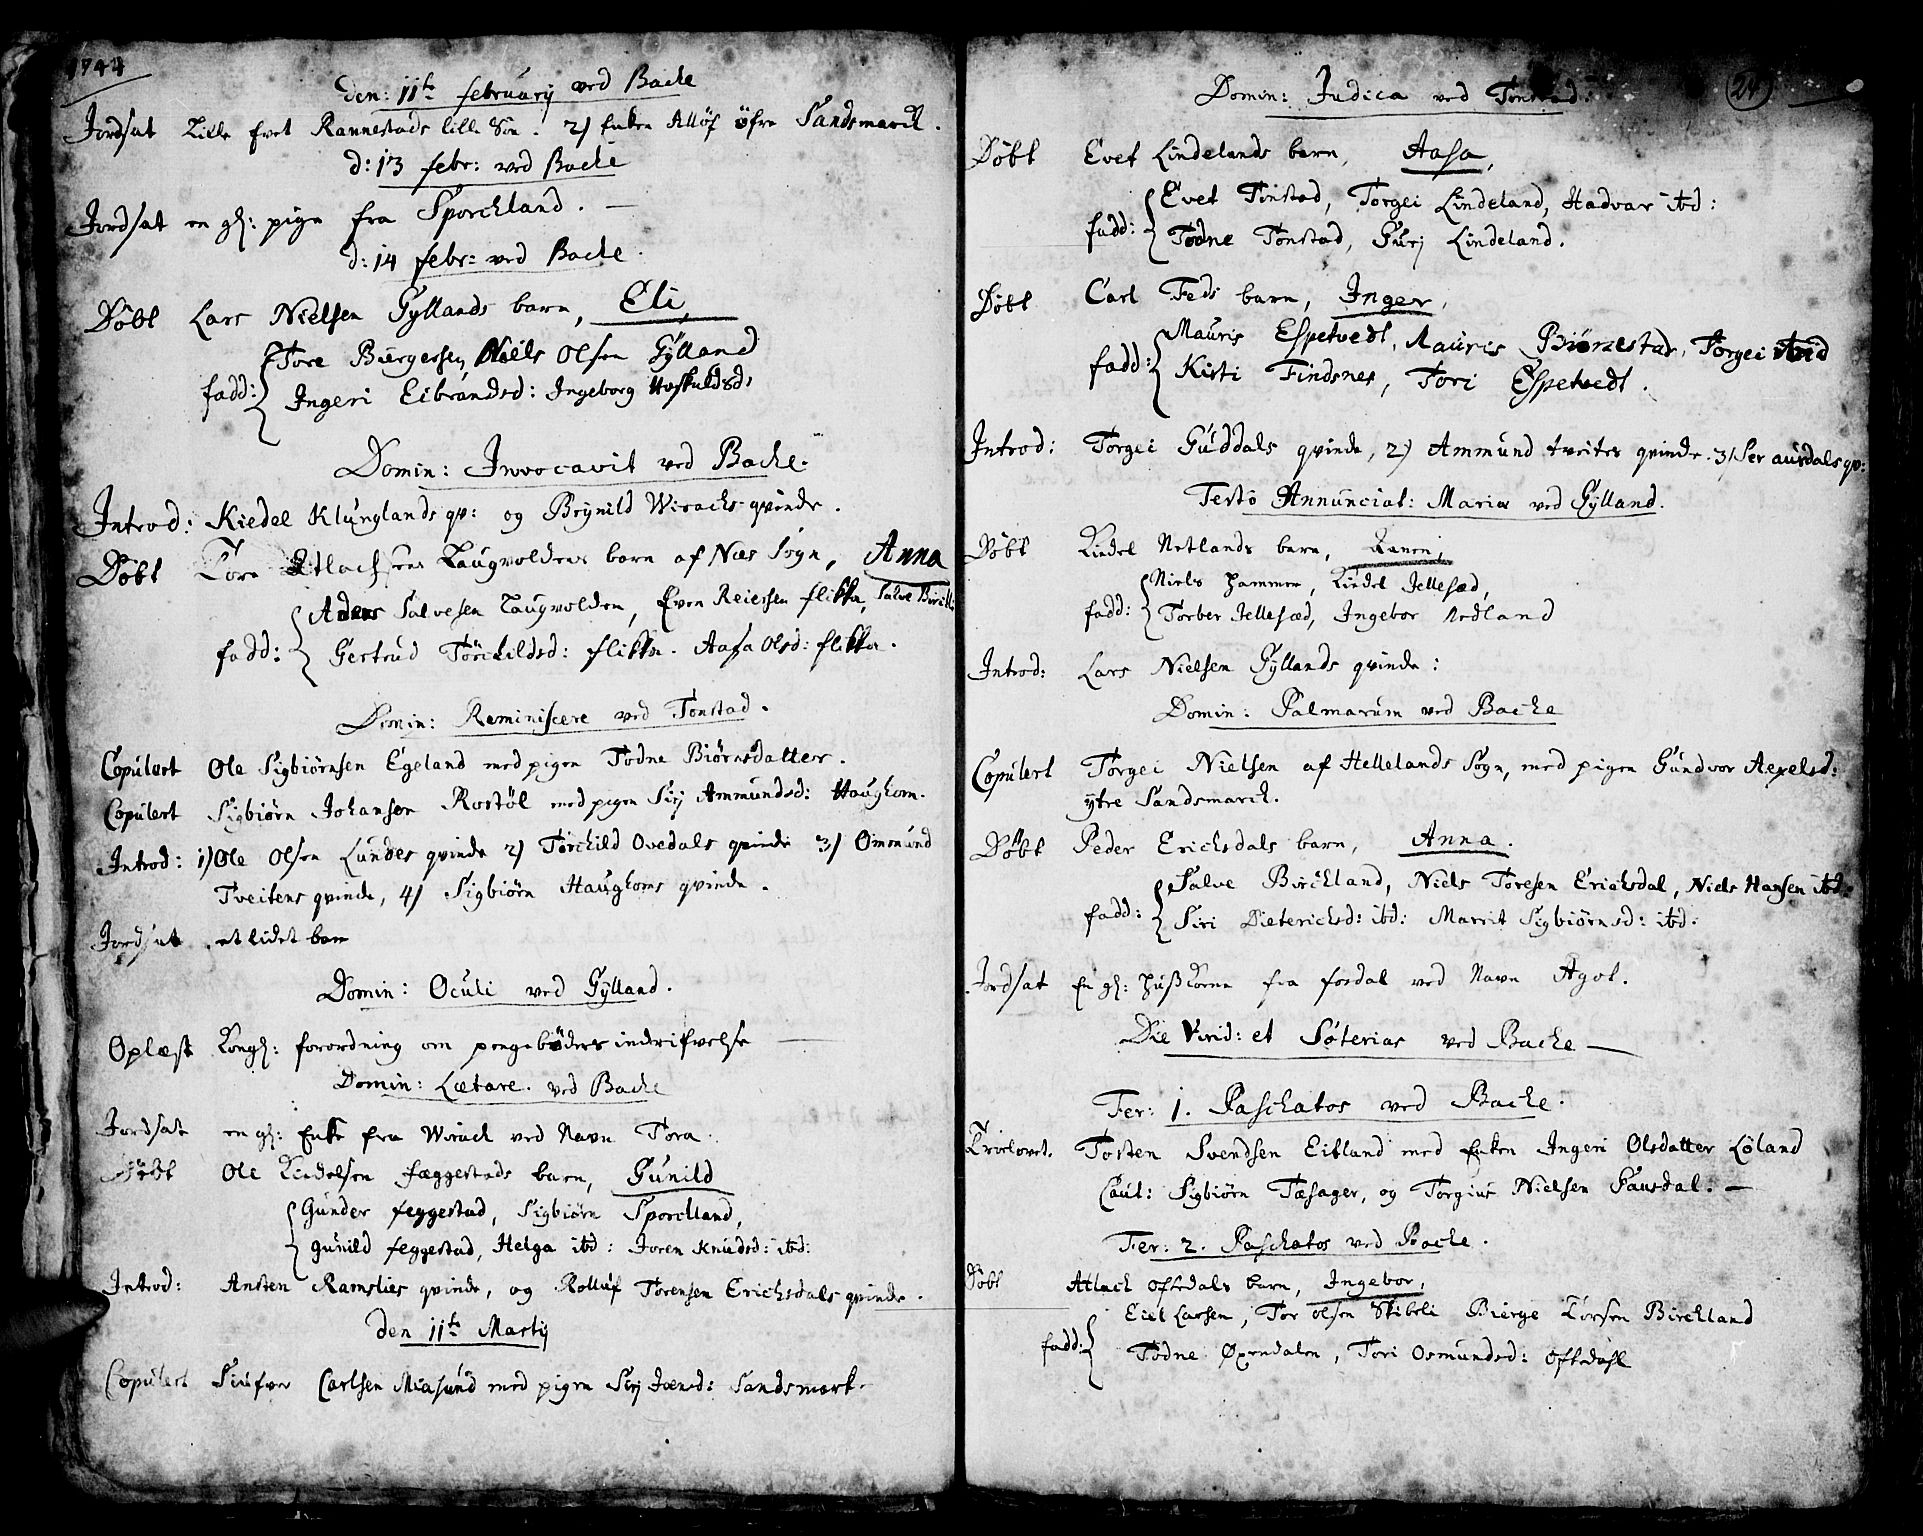 1744
den: 11te februarij ved Bache
Jordsat Lille Evet Rannestads lille Søn. 2) Enken Alløf øfre Sandsmarck.
d: 13 febr: ved Bache
Jordsat en gl: pige fra Sporckland.
d: 14 febr: ved Bache.
Døbt Lars Nielsen Gyllands barn, Eli,
Tore Børgersen, Niels Olsen Gylland
fadd: Ingeri Eibrandsd: Ingeborg Hoskuldsd:
Domin: Invocavit ved Bache.
Introd: Kiedel Klunglands qv: og Brynild Wirachs qvinde.
Døbt Tore Atlachsens Haugvoldens barn af Næs Sogn, Anna
Salvesen Haugvolden, Even Reiersen flikka, Salve
fadd: Gertrud Törckildsd: flikka. Aasa Olsd: flikka.
Domin: Reminiscere ved Tonstad.
Copulert Ole Sigbiørnsen Egeland med pigen Todne Biørnsdatter.
Copulert Sigbiørn Johansen Rostøl med pigen Sirj Ammundsd: Haughom.
Introd: 1) Ole Olsen Lundes qvinde 2) Törchild Ovedals qvinde 3) Ommund
Tveitens qvinde, 4) Sigbiørn Haughoms qvinde.
Jordsat et lidet barn
Domin: Oculi ved Gylland.
Oplæst Kongl: forordning om pengebøders inddrifvelse
Domin: Lætare. ved Bache
Jordsat en gl: Enke fra Wirach ved Navn Tora.
Døbt Ole Kiedelsen fæggestads barn, Gunild
Gunder feggestad, Sigbiørn Sporckland,
Gunild feggestad, Helga ibd: Joren Knudsd: ibd:
Introd: Ansten Ramslies qvinde, og Rolluf Torensen Erichsdals qvinde.
den 11te Martij
Copulert Siufver Carlsen Miasund med pigen Sirj Joensd: Sandsmark.
24
Domin: Judica ved Tonstad:
Døbt Evet Lindelands barn, Aasa,
Evet Tonstad, Torgei Lindeland, Hadvar ibd:
fadd: Todne Tonstad, Gurj Lindeland.
Døbt Carl Feds barn, Inger,
Mauris Espetvedt, Mauris Biørnestad, Torgei ibid
fadd: Kisti Findsnes, Tori Espetvedt.
Introd: Torgei Guddals qvinde, 2) Ammund tveites qvinde. 3) Ser ausdals qv:
Festo Annunciat: Mariæ ved Gylland.
Døbt Kiedel Netlands barn, Karen,
Niels Hammen, Kiedel Jellesæd,
fadd: Torber Jellesæd, Ingebor Nedland
Introd: Lars Nielsen Gyllands qvinde:
Domin: Palmarum ved Bache
Copulert Torgei Nielsen af Hellelands Sogn, med pigen Gundvor Aexelsd:
ytre Sandsmarck.
Døbt Peder Erichsdals barn, Anna.
Salve Birckland, Niels Toresen Erichsdal, Niels Hansen ibd:
fadd: Siri Dieterichsd: ibd: Marrit Sigbiørnsd: ibd:
Jordsat En gl: Huskone fra fosdal ved Navn Agot.
Die Virid: et Soterias ved Bache
Fer: 1. Paschatos ved Bache.
Trolovet. Tosten Svendsen Eikland med Enken Ingeri Olsdatter Løland
Caut: Sigbiørn Tæsager, og Torgius Nielsen Gausdal.
Fer: 2. Paschatos ved Bache.
Døbt Atlach ofstedals barn, Ingebor,
Eiel Larsen, Tor olsen Skibeli Bierge Torsen Birckland
fadd: Todne Øxendalen, Tori Osmundsd: ofstedahl